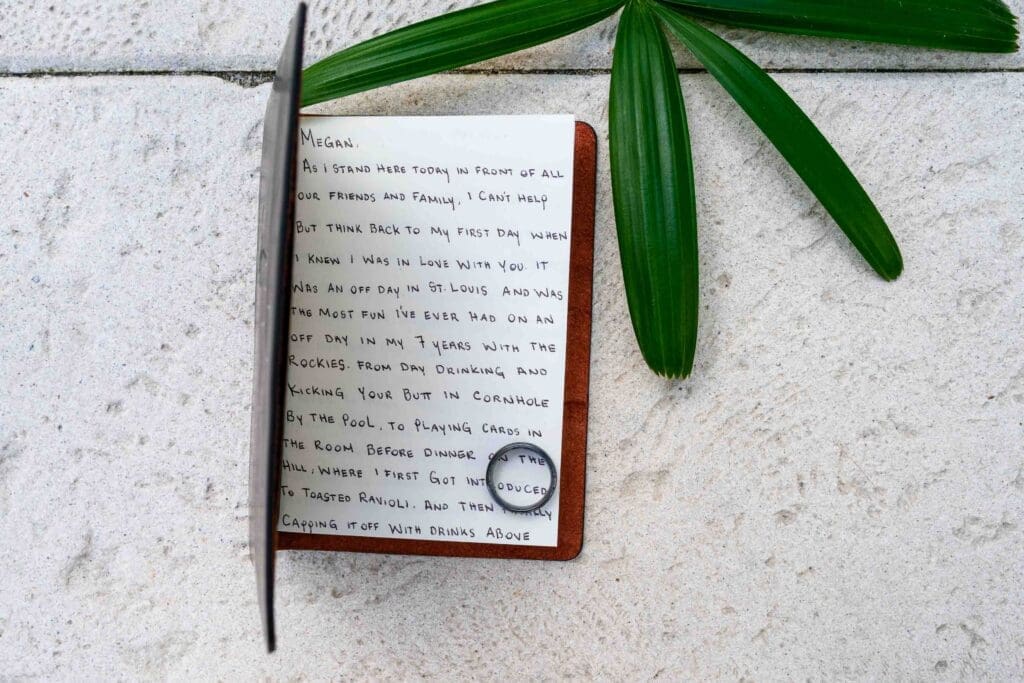 MEGAN,
AS I STAND HERE TODAY IN FRONT OF ALL
OUR FRIENDS AND FAMILY, I CAN'T HELP
BUT THINK BACK TO MY FIRST DAY WHEN
I KNEW I WAS IN LOVE WITH YOU. IT
WAS AN OFF DAY IN ST. LOUIS AND WAS
THE MOST FUN I'VE EVER HAD ON AN
OFF DAY IN MY 7 YEARS WITH THE
ROCKIES. FROM DAY DRINKING AND
KICKING YOUR BUTT IN CORNHOLE
BY THE POOL, TO PLAYING CARDS IN
THE ROOM BEFORE DINNER ON THE
HILL, WHERE I FIRST GOT INTRODUCED
TO TOASTED RAVIOLI. AND THEN
CAPPING IT OFF WITH DRINKS ABOVE